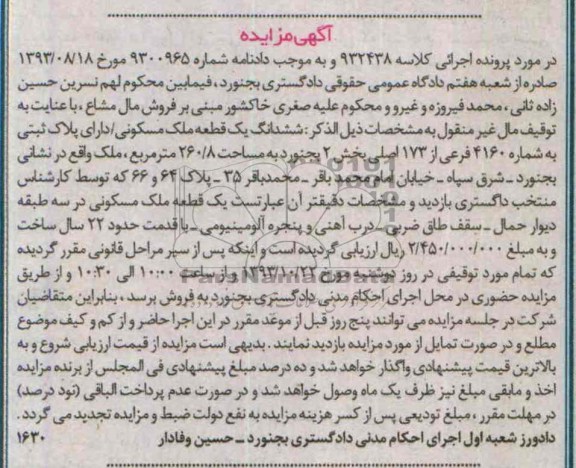 آگهی مزایده
در مورد پرونده اجرائی کلاسه ۹۳۲۴۳۸ و به موجب دادنامه شماره ۹۳۰۰۹۶۵ مورخ ۱۳۹۳/۰۸/۱۸
صادره از شعبه هفتم دادگاه عمومی حقوقی دادگستری بجنورد ، فیمابین محکوم لهم نسرین حسین
زاده ثانی ، محمد فیروزه و غیرو و محکوم علیه صغری خاکشور مبنی بر فروش مال مشاع ، با عنایت به
توقیف مال غیر منقول به مشخصات ذیل الذکر : ششدانگ یک قطعه ملک مسکونی/دارای پلاک ثبتی
به شماره ۴۱۶۰ فرعی از ۱۷۳ اصلی بخش ۲ بجنورد به مساحت ۲۶۰/۸ مترمربع ، ملک واقع در نشانی
بجنورد ـ شرق سپاه ـ خیابان امام محمد باقر ـ محمدباقر ۳۵ ـ پلاک ۶۴ و ۶۶ که توسط کارشناس
منتخب داگستری بازدید و مشخصات دقیقتر آن عبارتست یک قطعه ملک مسکونی در سه طبقه
دیوار حمال ـ سقف طاق ضربی ـ درب آهنی و پنجره آلومینیومی ـ با قدمت حدود ۲۲ سال ساخت
و به مبلغ ۳/۴۵۰/۰۰۰/۰۰۰ ریال ارزیابی گردیده است و اینکه پس از سیر مراحل قانونی مقرر گردیده
که تمام مورد توقیفی در روز دوشنبه مورخ ۱۳۹۳/۱۰/۲۲ و از ساعت ۱۰:۰۰ الی ۱۰:۳۰ و از طریق
مزایده حضوری در محل اجرای احکام مدنی دادگستری بجنورد به فروش برسد ، بنابراین متقاضیان
شرکت در جلسه مزایده می توانند پنج روز قبل از موعد مقرر در این اجرا حاضر و از کم و کیف موضوع
مطلع و در صورت تمایل از مورد مزایده بازدید نمایند . بدیهی است مزایده از قیمت ارزیابی شروع و به
بالاترین قیمت پیشنهادی واگذار خواهد شد و ده درصد مبلغ پیشنهادی فی المجلس از برنده مزایده
اخذ و مابقی مبلغ نیز ظرف یک ماه وصول خواهد شد و در صورت عدم پرداخت الباقی (نود درصد)
در مهلت مقرر ، مبلغ تودیعی پس از کسر هزینه مزایده به نفع دولت ضبط و مزایده تجدید می گردد .
دادورز شعبه اول اجرای احکام مدنی دادگستری بجنورد ـ حسین وفادار ۱۶۳۰